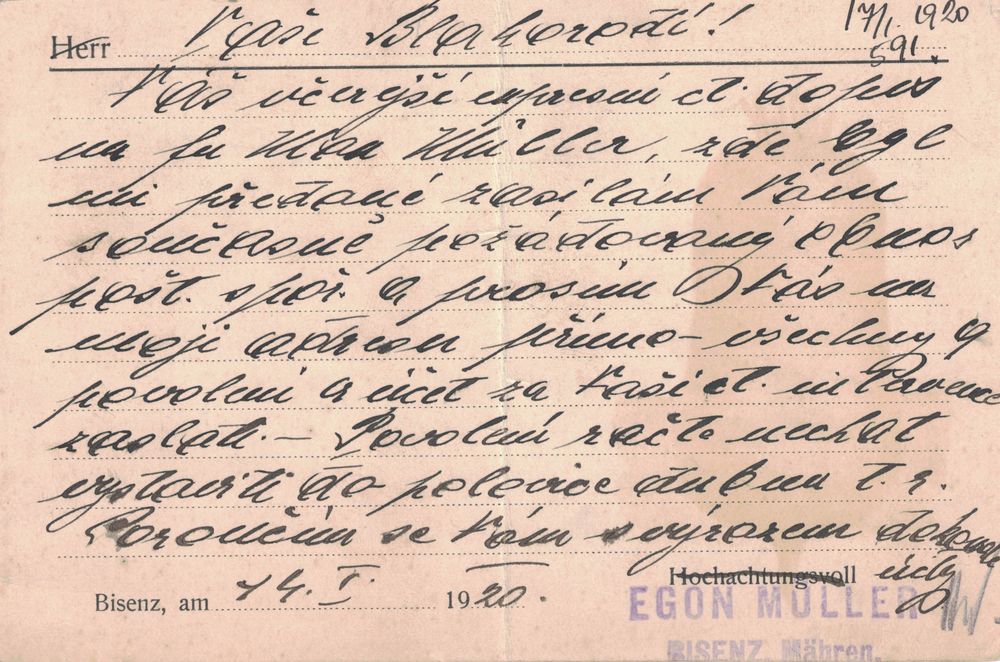 17/I. 1920
591.
Herr Vaši Blahorodí!
Váš včerejší expresní ct. dopis
na fu Max Müller, zde byl
mi předané zasílám Vám
současně požádovaný obnos
pošt. spoř. a prosím Vás na
moji adresu přímo – všechny 9
povolení a účet za Vaši ct.
zaslati. – Povolení račte nechat
vystaviti do polovice dubna t. r.
Poroučím se Vám s výrazem dokonalé
Hochachtungsvoll úcty
Bisenz, am 14. I. 1920.
EGON MÜLLER
BISENZ, Mähren.